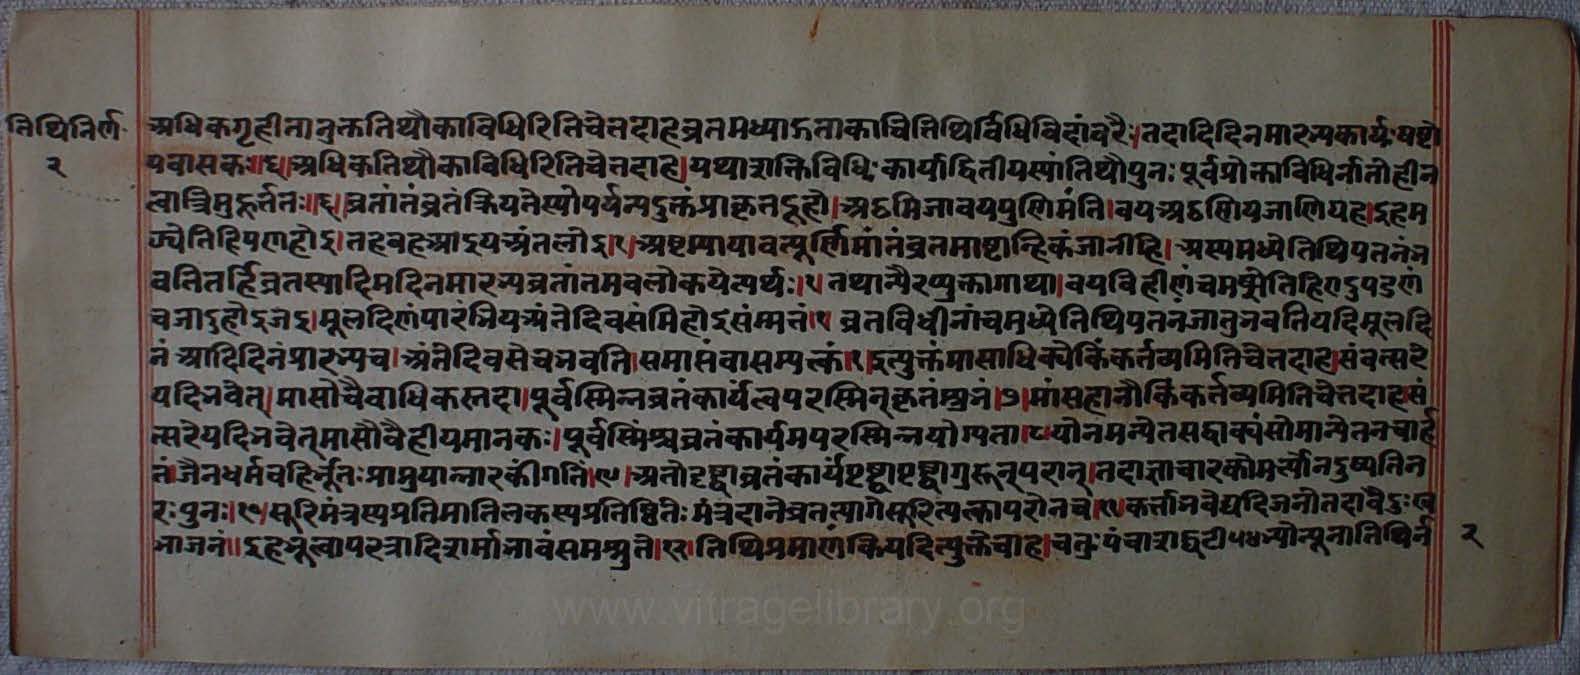 तिथिनिर्ण॰
२
अधिकगृहीतानुक्ततिथौकाविधिरितिचेत्तदाहव्रतमध्याऽताकाचित्तिथिर्विधिविदांवरैः।तदादिदिनमारभ्यकार्यः
पवासकः॥६।अधिकतिथौकाविधिरितिचेत्तदाह।यथाशक्तिविधिःकार्याद्वितीयस्यांतिथौपुनःपूर्वप्रोक्ताविधिर्नातोहीन
त्वात्रिमुहूर्त्ततः॥६।व्रतांतंव्रतंक्रियते प्राकृतदूहो।अठमिजावयपुण्णिमंति।वयअठण्णियजाणियह।इहम
ज्येतिहिपणहोइ।तहवहआइयअंतलोइ।१।अष्टम्यायावत्पूर्णिमांतंव्रतमाष्टान्हिकंजानीहि।अस्यमध्येतिथिपतनंभ
वतितर्हिव्रतस्यादिमदिनमारभ्यव्रतांतमवलोकयेत्यर्थः।१।तथान्यैरप्युक्तागाथा।वयविहीणंचमझेतिहिएइपडणं
चजाइहोइजइ।मूलदिणंपारंभियअंतेदिवसंमिहोइसंम्मत्तं।१ व्रतविधीनांचमध्येतिथिपतनजातुभवतियदिमूलदि
नंआदिदिनंप्रारभ्यच।अंतेदिवसेचभवति।समासंवासम्यत्क्तं।१।इत्युक्तंमासाधिक्येकिंकर्त्तव्यमितिचेत्तदाह।संवत्सरे
यदिभवेत्।मासोचैवाधिकस्तदा।पूर्वस्मिन्नव्रतंकार्यंत्वपरस्मिन्कृतंम्शुभं।७।मांसहानौकिंकर्त्तव्यमितिचेत्तदाह।सं
त्सरेयदिभवेत्मासौवैहीयमानकः।पूर्वस्मिंश्चव्रतंकार्यमपरस्मिन्नयोग्यता।८योनमन्येतसद्वाक्यंसोमान्येतनचार्ह
तं।जैनधर्मबहिर्भूतःप्राप्नुयान्नारकींगतिं।९।अतोदृष्ट्वाव्रतंकार्यंपृष्ट्वापृष्ट्वागुरून्परान्।तदाज्ञाचारकोमर्त्योनदुष्यतिन
रःपुनः।१०।सूरिमंत्रस्यप्रतिमातिलकस्यप्रतिष्ठितेः।मंत्रदानेव्रतत्यागेसूरिंत्यत्क्वापरोनच।११।कर्त्ताभवेद्यदिजनोतदावैदुःख
भाजनं॥इहभूत्वापरत्रादि समश्नुते।१२।तिथिप्रमाणंकियदित्युक्तेचाह।चतुःपंचाशद्घटी५४भ्योन्यूनातिथिर्न
२
www.vitragelibrary.org